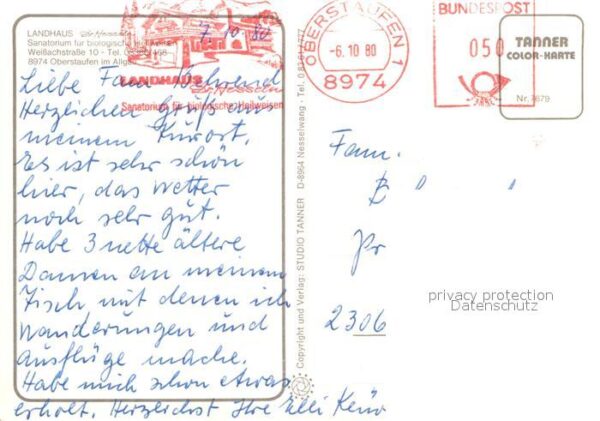 LANDHAUS
Sanatorium für biologische Heilweisen
Weißachstraße 10 - Tel.
8974 Oberstaufen im Allg
7.10.80
LANDHAUS
Sanatorium für biologische Heilweisen
OBERSTAUFEN 1
-6.10 80
8974
BUNDESPOST
050
TANNER
COLOR-KARTE
Nr. 7679
Liebe Fam.
Herzlichen Gruß aus
meinem Kurort.
Es ist sehr schön
hier, das Wetter
noch sehr gut.
Habe 3 nette ältere
Damen an meinem
Tisch mit denen ich
Wanderungen und
Ausflüge mache.
Habe mich schon etwas
erholt. Herzlichst Ihre Elli
Copyright und Verlag: STUDIO TANNER D-8964 Nesselwang · Tel.
Fam.
B
Pr
2306
privacy protection
Datenschutz